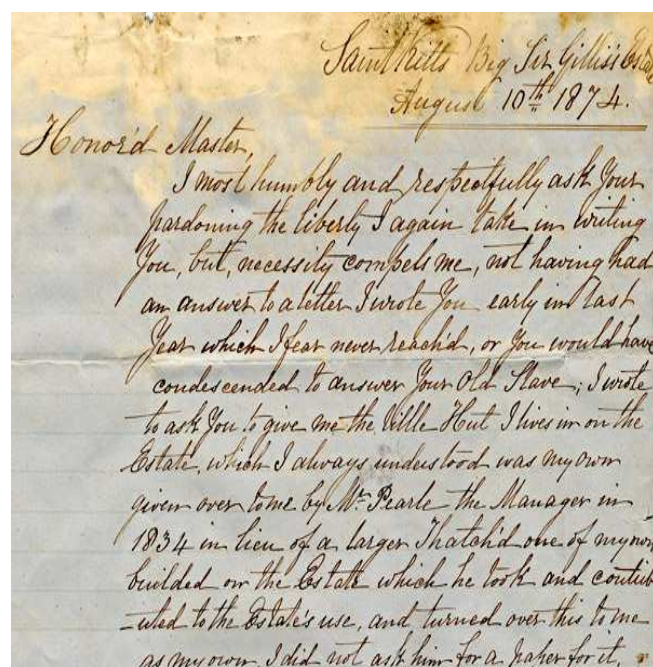 Saint Kitts Big Sir Gillis's Estate
August 10th 1874.
Honor'd Master,
I most humbly and respectfully ask Your
pardoning the liberty I again take in writing
You, but, necessity compels me, not having had
an answer to a letter I wrote You early in last
Year which I fear never reach'd, or You would have
condescended to answer Your Old Slave; I wrote
to ask You to give me the little Hut I lives in on the
Estate, which I always understood was my own
given over to me by Mr. Pearle the Manager in
1834 in lieu of a larger Thatch'd one of my own
builded on the Estate which he took and contrib
-uted to the Estate's use, and turned over this to me
as my own, I did not ask him for a paper for it